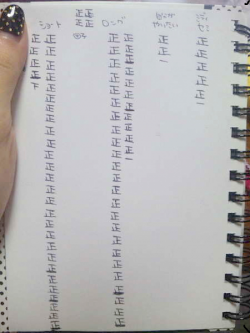 正正
正正
ショート ロング
正 正 正 正 正 正
正 正 正 正 正 正
正 正 正 正 一 正
正 正 正 正 正
下 正 正 正 正
正 正 正 一
正 正 正
正 正 正
正 正 正
正 正 正
正 正 一
正 正
正 正
正 正
正 正
正 正
正 正
正 正
正 正
正 正
正 正
正 正
正 正
正 正